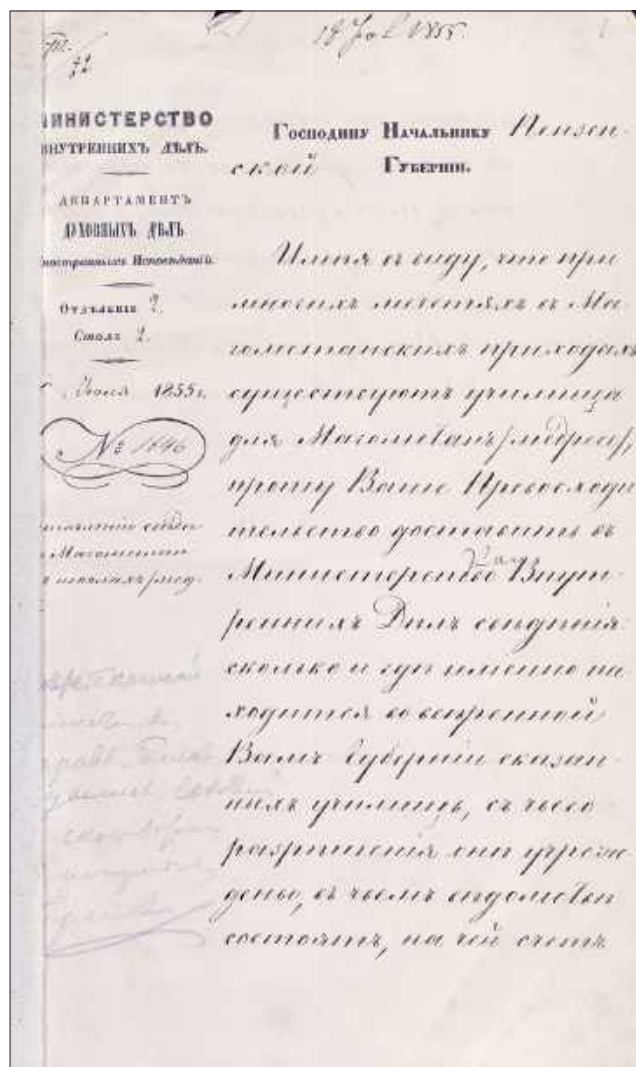 18 Іюл 1855
МИНИСТЕРСТВО
ВНУТРЕННИХЪ ДѢЛЪ.
ДЕПАРТАМЕНТЪ
ДУХОВНЫХЪ ДѢЛЪ
Иностранныхъ Исповѣданій.
Отдѣленіе 2.
Столъ 2.
Іюля 1855 г.
№ 1846
Магометан
школахъ /мед-
Господину Начальнику Пензен-
ской Губерніи.
Имѣя въ виду, что при
многихъ мечетяхъ въ Ма-
гометанскихъ приходахъ
существуютъ училища
для Магометанъ /медресы/,
прошу Ваше Превосходи-
тельство доставить въ
Министерство Внут-
реннихъ Дѣлъ свѣдѣнія
сколько и гдѣ именно на-
ходится во ввѣренной
Вамъ Губерніи сказан-
ныхъ училищъ, съ чьего
разрѣшенія они учреж-
дены, въ чьемъ вѣдомствѣ
состоятъ, на чей счетъ